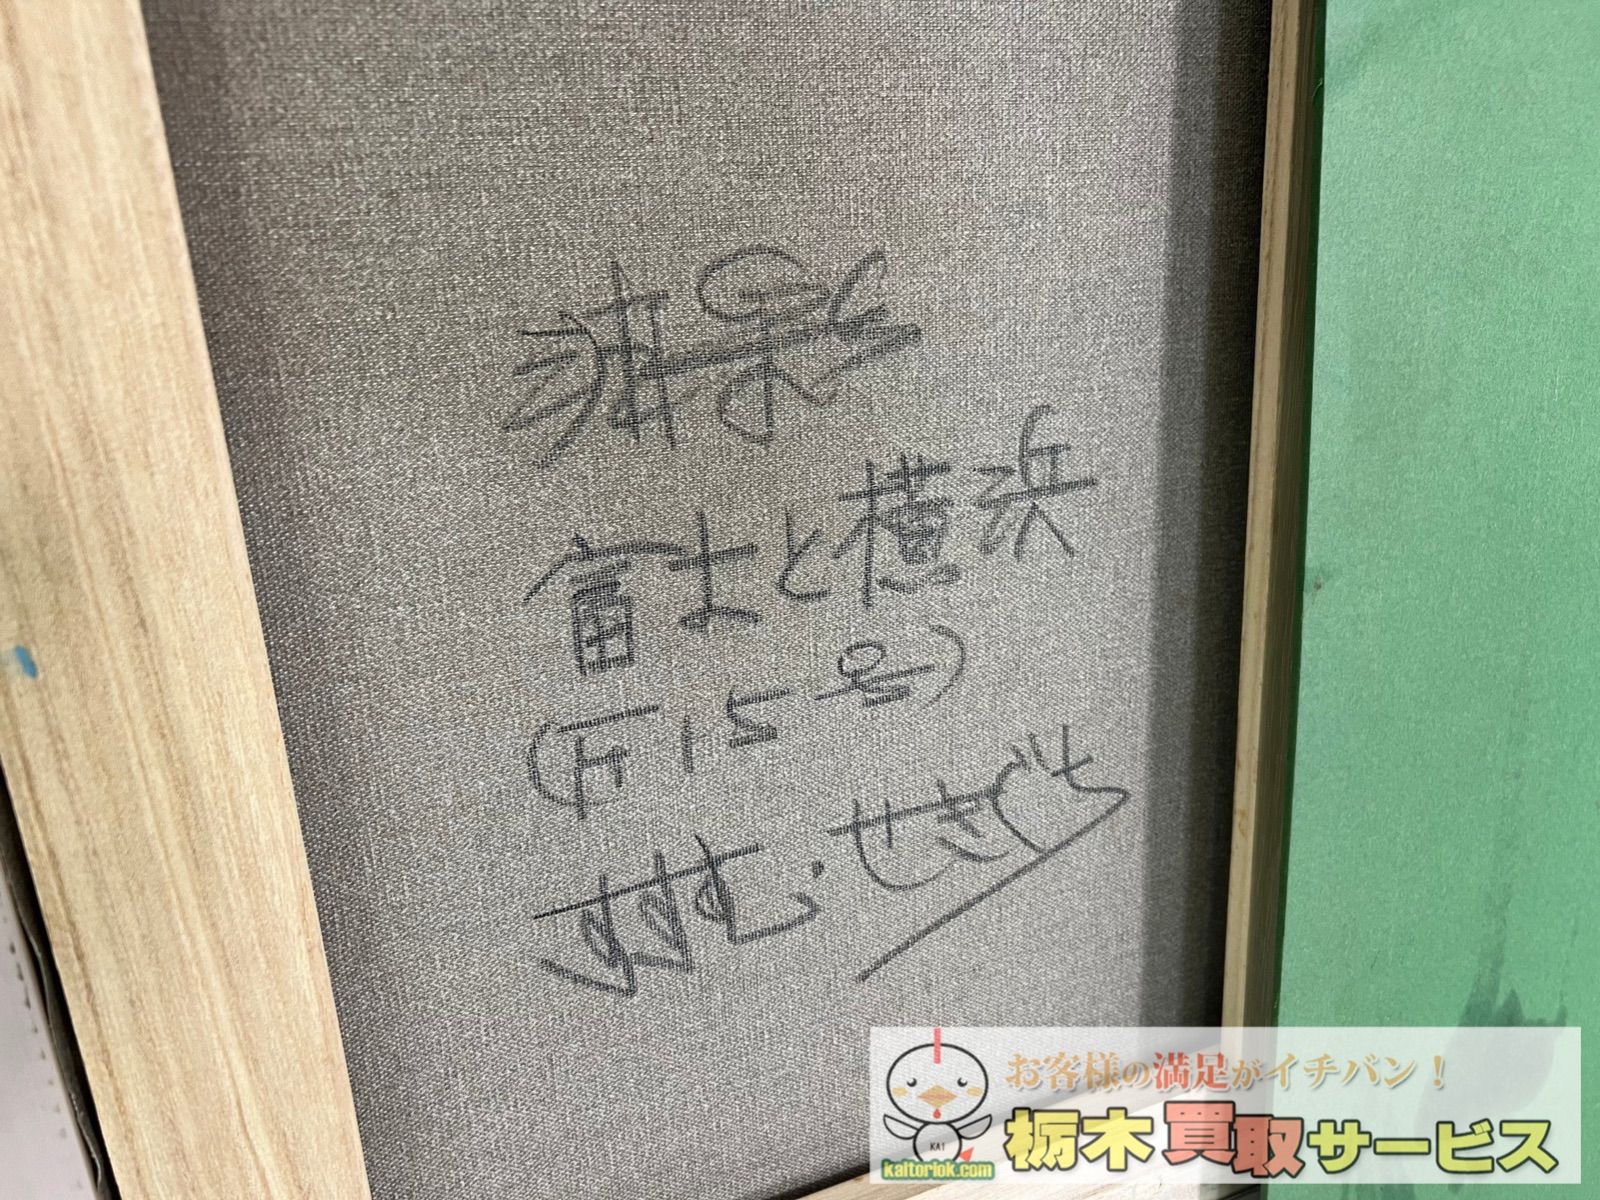 富士と横浜
(F15号)
すすむ・せきぐち
お客様の満足がイチバン!
KAI
kaitoriok.com
栃木買取サービス